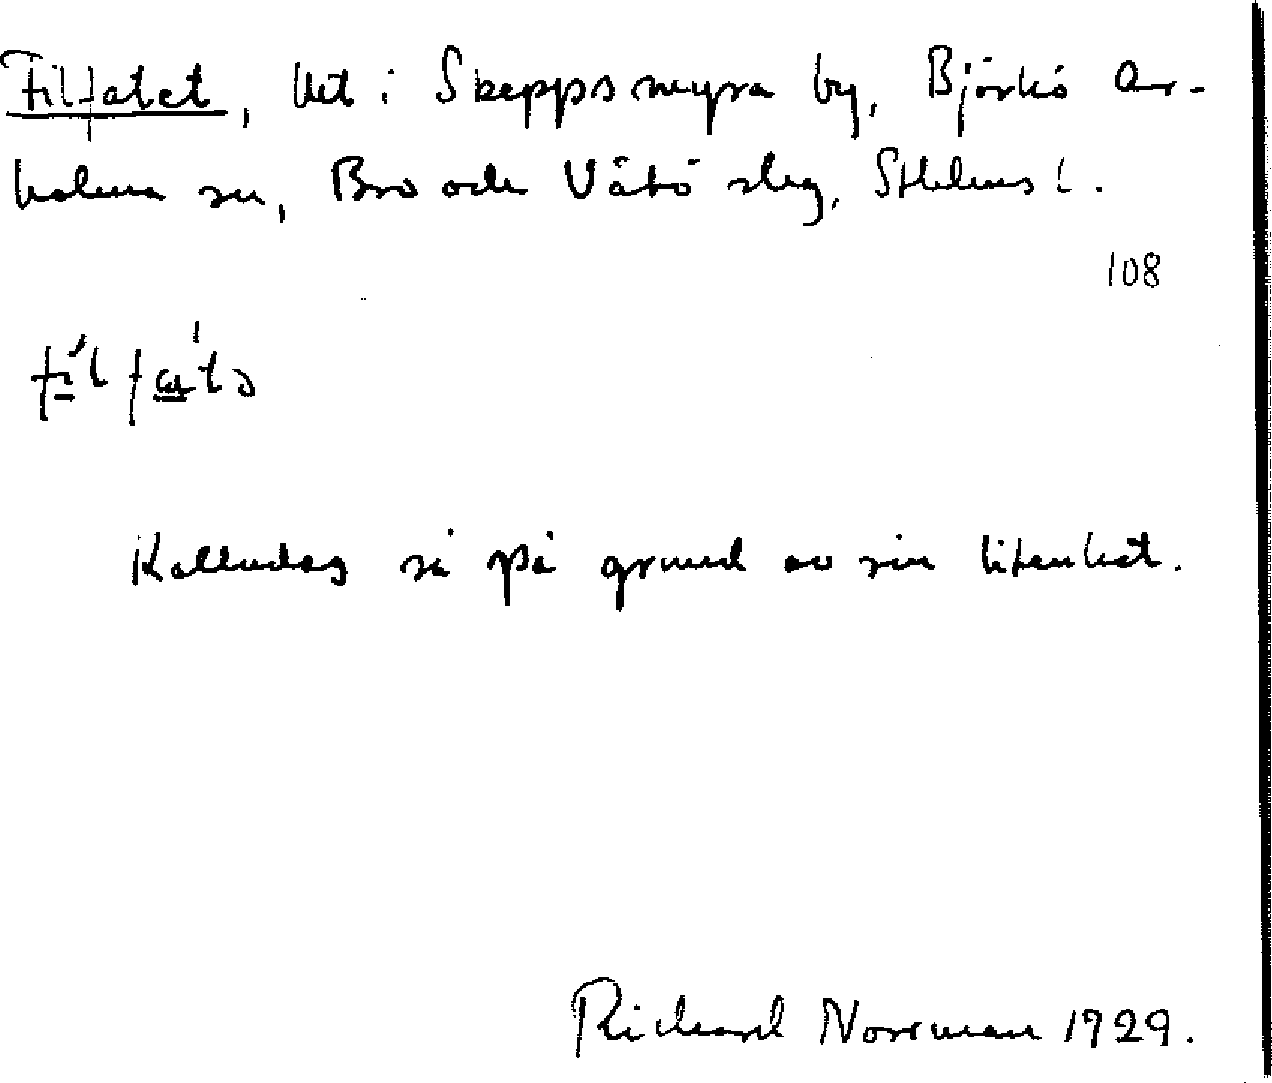 Filfatet, lht i Skeppsmyra by, Björkö Ar-
holma sn, Bro och Vätö slg, Sthlms l.
108
Kallades så på grund av sin litenhet.
Richard Norrman 1929.